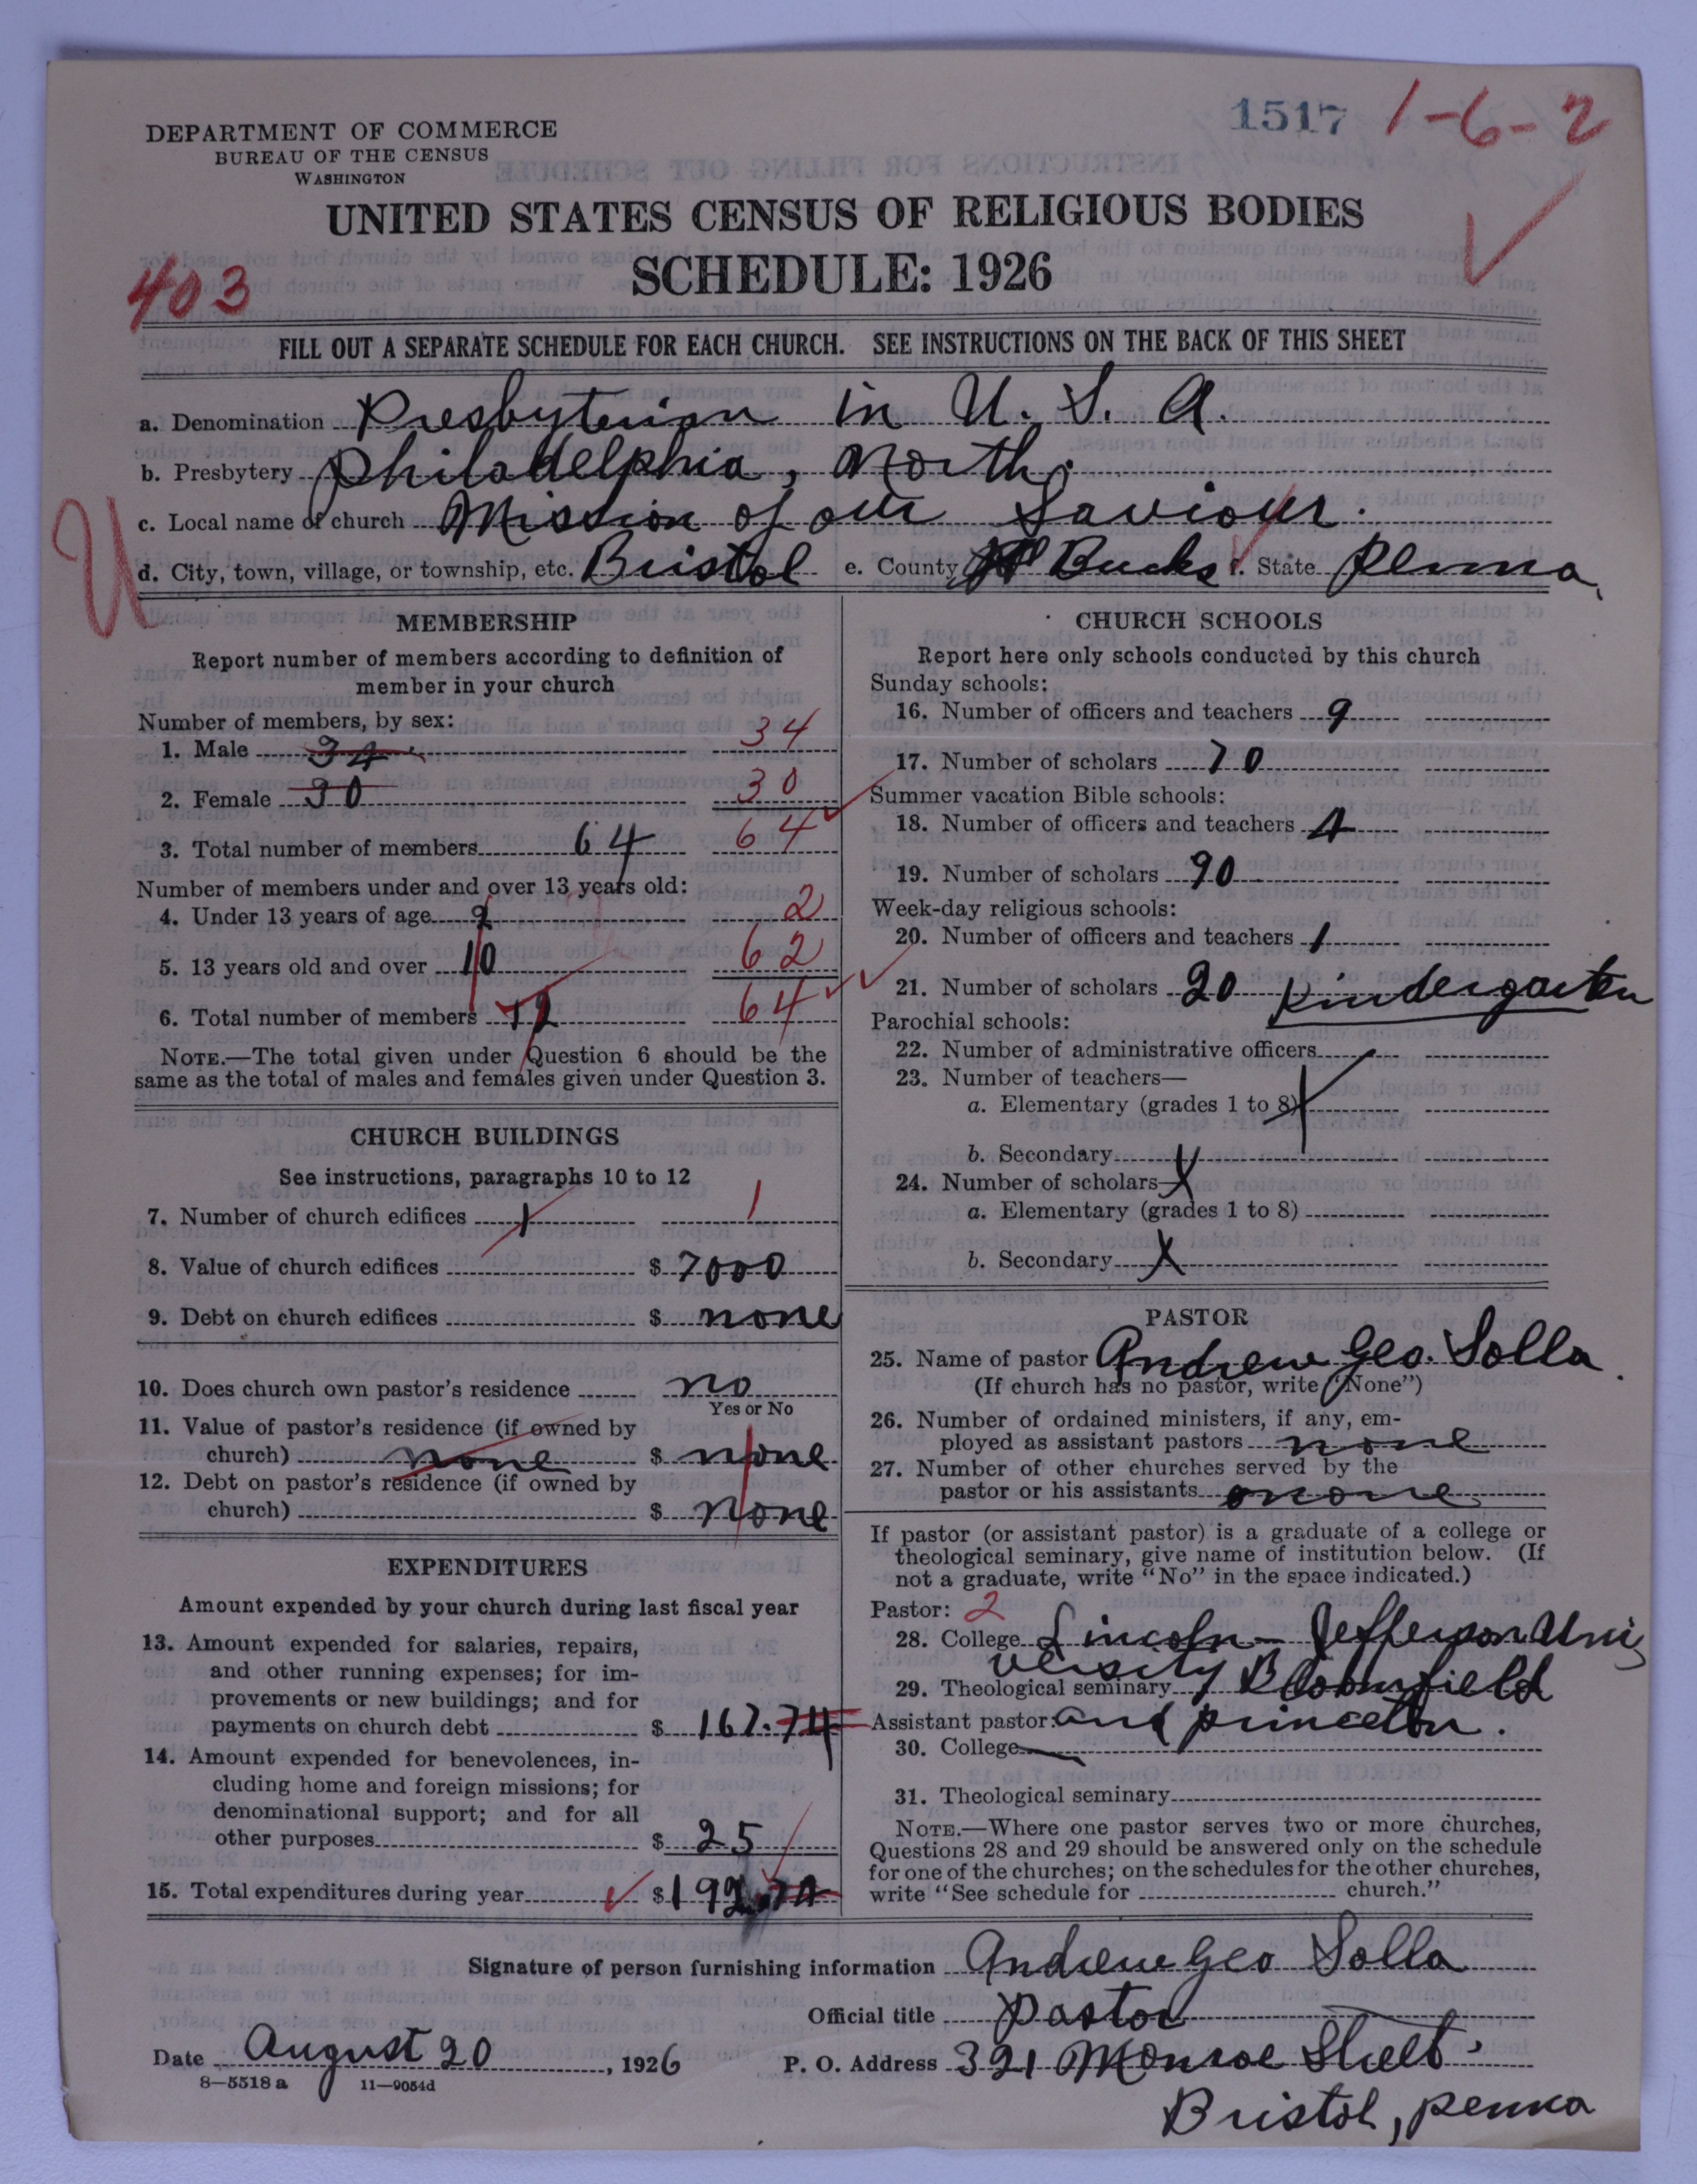 1517 1-6-2
DEPARTMENT OF COMMERCE
BUREAU OF THE CENSUS
WASHINGTON
UNITED STATES CENSUS OF RELIGIOUS BODIES
SCHEDULE: 1926
403
FILL OUT A SEPARATE SCHEDULE FOR EACH CHURCH. SEE INSTRUCTIONS ON THE BACK OF THIS SHEET
a. Denomination Presbyterian in U. S. A.
b. Presbytery Philadelphia, North.
c. Local name of church Mission of our Saviour.
U
d. City, town, village, or township, etc. Bristol e. County Bucks f. State Penna.
MEMBERSHIP
Report number of members according to definition of
member in your church
Number of members, by sex:
1. Male 34 34
2. Female 30 30
3. Total number of members 64 64
Number of members under and over 13 years old:
4. Under 13 years of age 2 2
5. 13 years old and over 10 62
6. Total number of members 12 64
NOTE.—The total given under Question 6 should be the
same as the total of males and females given under Question 3.
CHURCH BUILDINGS
See instructions, paragraphs 10 to 12
7. Number of church edifices 1 1
8. Value of church edifices $ 7000
9. Debt on church edifices $ none
10. Does church own pastor's residence no
Yes or No
11. Value of pastor's residence (if owned by
church) none $ none
12. Debt on pastor's residence (if owned by
church) $ none
EXPENDITURES
Amount expended by your church during last fiscal year
13. Amount expended for salaries, repairs,
and other running expenses; for im-
provements or new buildings; and for
payments on church debt $ 167.74
14. Amount expended for benevolences, in-
cluding home and foreign missions; for
denominational support; and for all
other purposes $ 25
15. Total expenditures during year $ 192.74
CHURCH SCHOOLS
Report here only schools conducted by this church
Sunday schools:
16. Number of officers and teachers 9
17. Number of scholars 70
Summer vacation Bible schools:
18. Number of officers and teachers 4
19. Number of scholars 90
Week-day religious schools:
20. Number of officers and teachers 1
21. Number of scholars 20 Kindergarten
Parochial schools:
22. Number of administrative officers
23. Number of teachers—
a. Elementary (grades 1 to 8) X
b. Secondary
24. Number of scholars— X
a. Elementary (grades 1 to 8)
b. Secondary X
PASTOR
25. Name of pastor Andrew Geo. Solla.
(If church has no pastor, write "None")
26. Number of ordained ministers, if any, em-
ployed as assistant pastors none
27. Number of other churches served by the
pastor or his assistants none
If pastor (or assistant pastor) is a graduate of a college or
theological seminary, give name of institution below. (If
not a graduate, write "No" in the space indicated.)
Pastor: 2
28. College Lincoln-Jefferson Uni
versity
29. Theological seminary Bloomfield
Assistant pastor: and princeton.
30. College
31. Theological seminary
NOTE.—Where one pastor serves two or more churches,
Questions 28 and 29 should be answered only on the schedule
for one of the churches; on the schedules for the other churches,
write "See schedule for church."
Signature of person furnishing information Andrew Geo Solla
Official title pastor
Date August 20, 1926 P. O. Address 321 Monroe Street.
8-5518 a 11-9054d
Bristol, penna